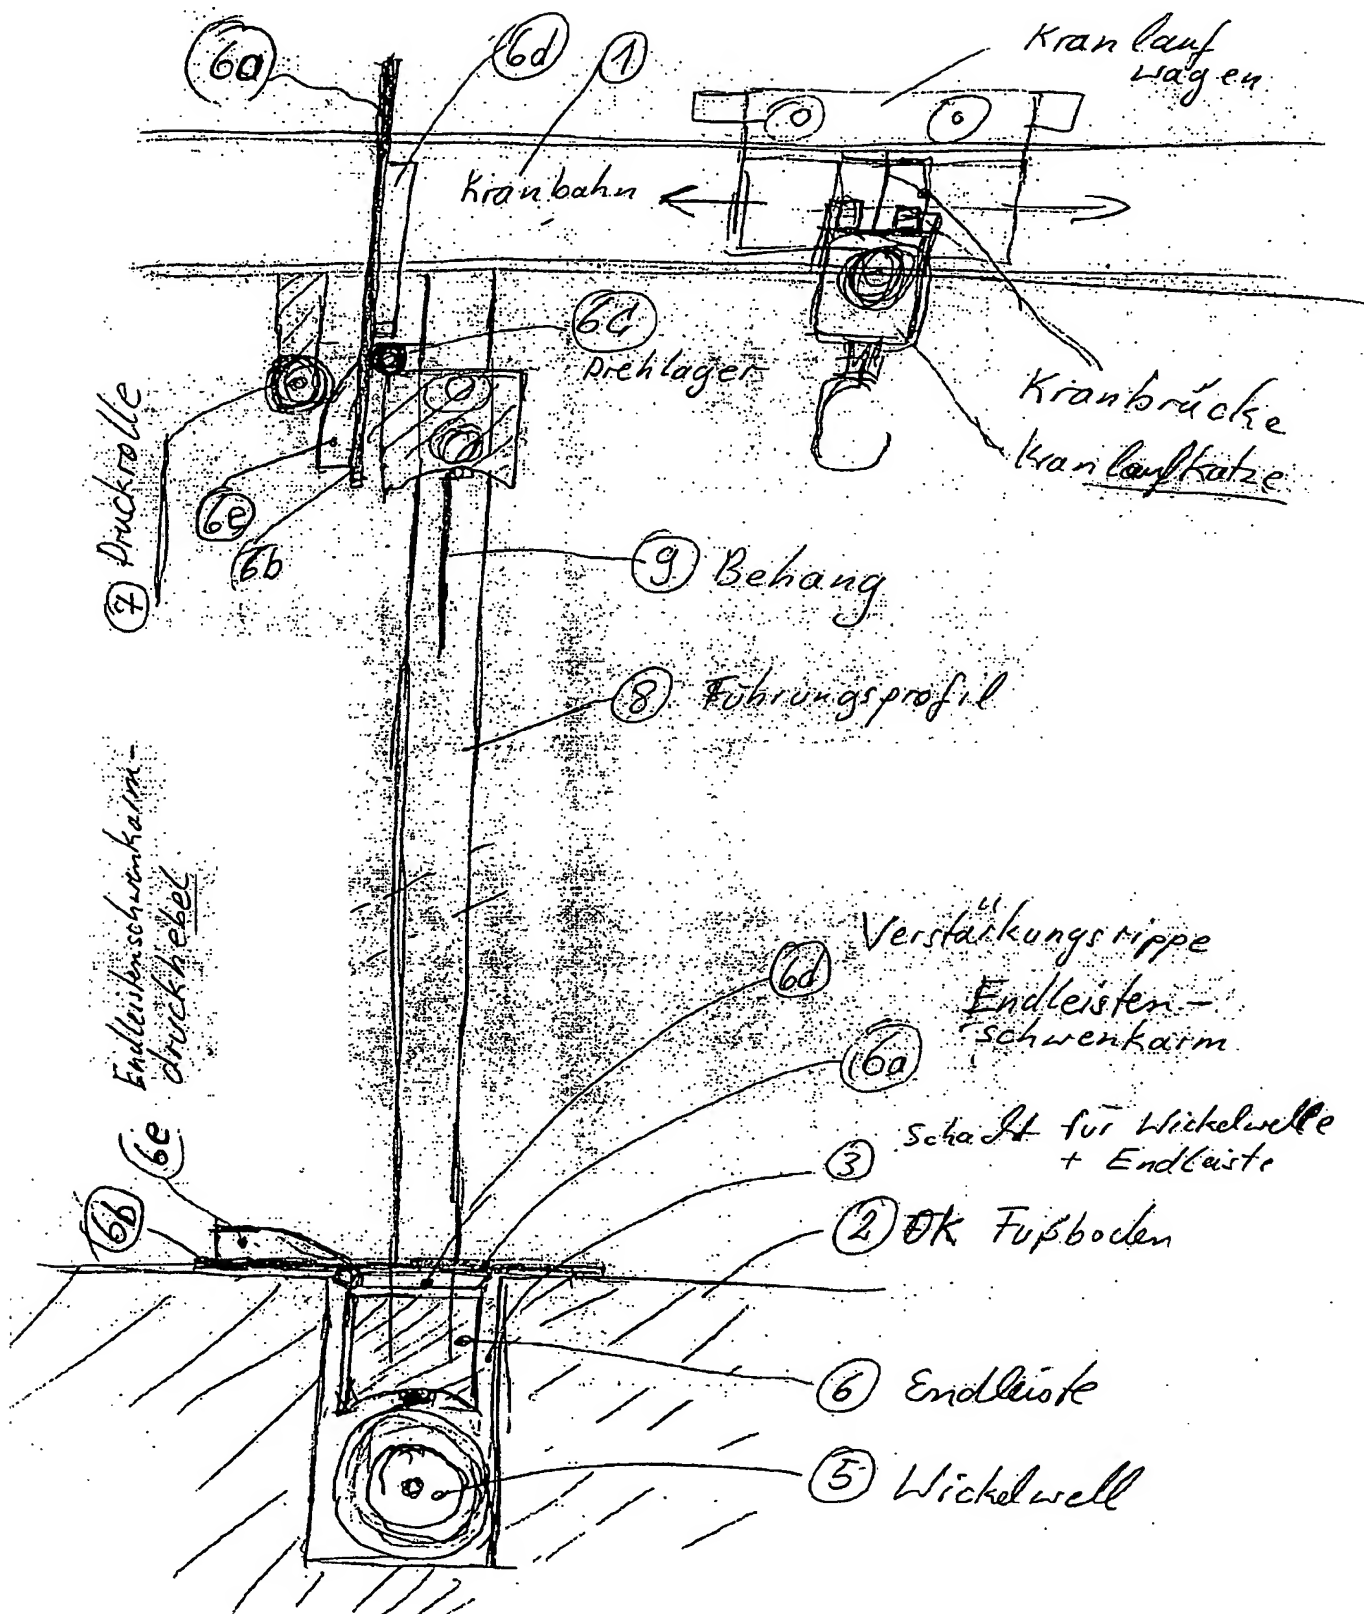 6a
6d
1
Kranlauf
wagen
Kranbahn
6c
Drehlager
Kranbrücke
Kranlaufkatze
7 Druckrolle
6e
6b
9 Behang
8 Führungsprofil
Endleistenschwenkarm-
druckhebel
6e
6d
Verstärkungsrippe
Endleisten-
schwenkarm
6a
3
Schacht für Wickelwelle
+ Endleiste
6b
2 OK Fußboden
6 Endleiste
5 Wickelwell